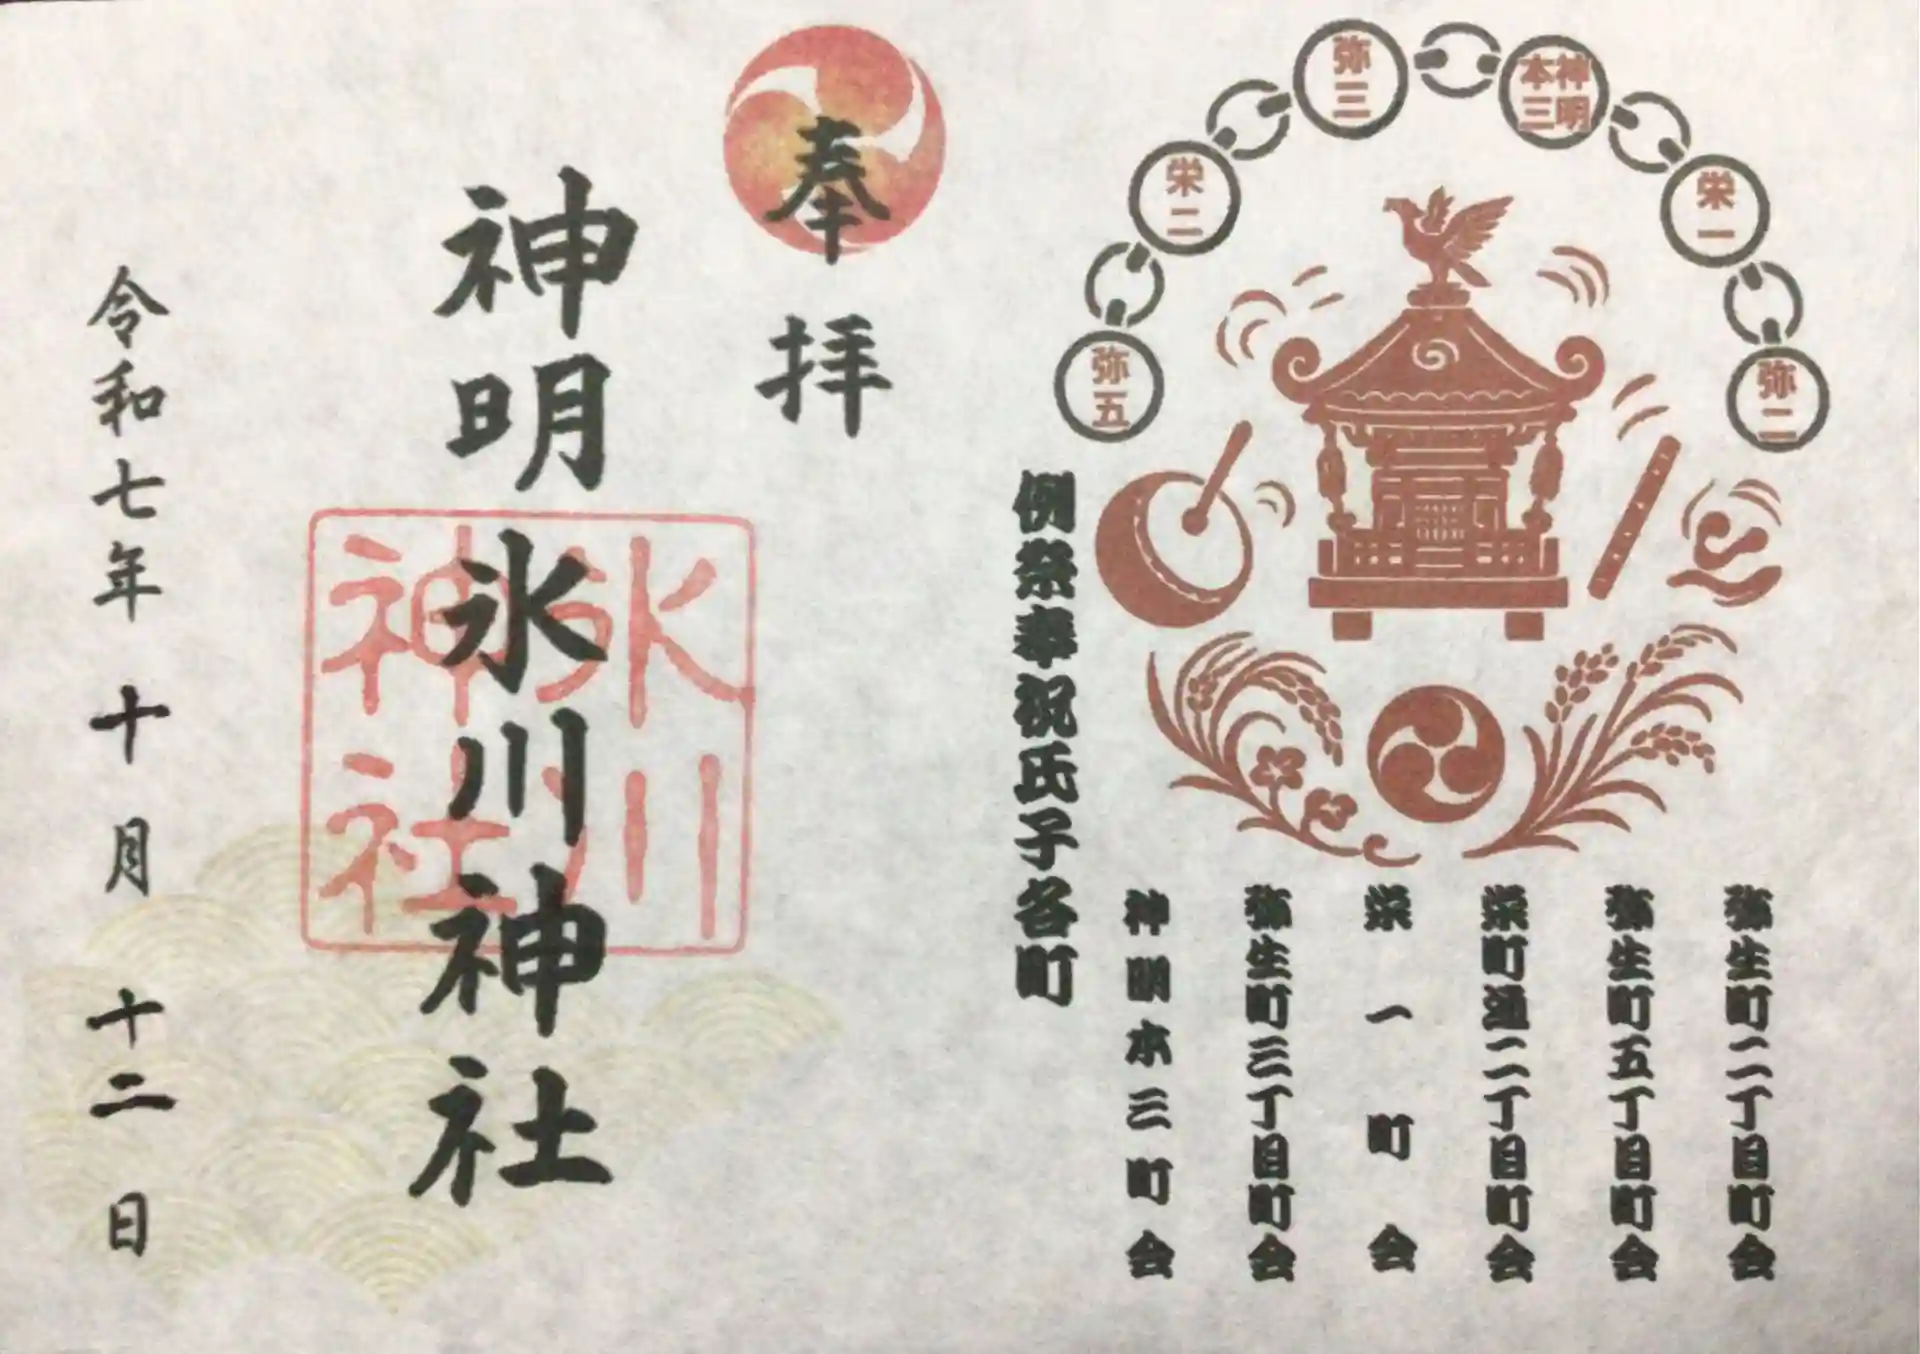 弥二
栄一
神明
本三
弥三
栄二
弥五
弥生町二丁目町会
弥生町五丁目町会
栄町通二丁目町会
栄一町会
弥生町三丁目町会
神明本三町会
例祭奉祝氏子各町
奉拝
神明氷川神社
氷川
神社
令和七年十月十二日